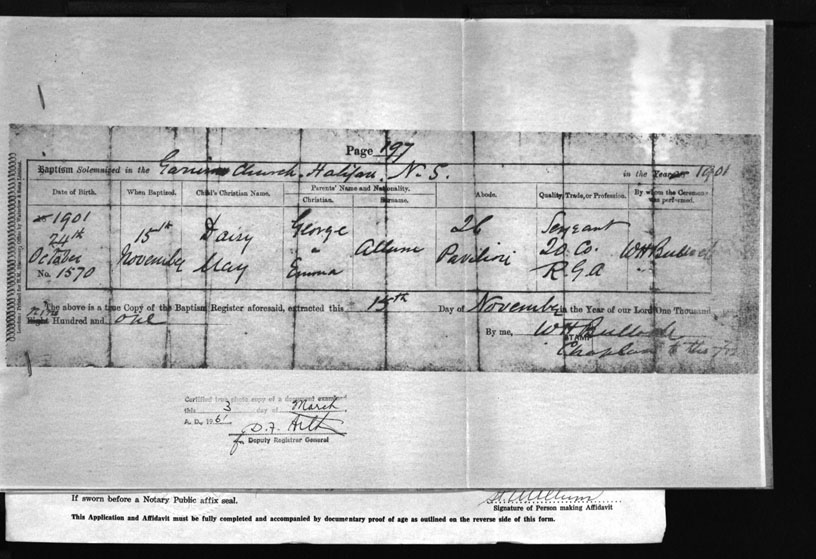 Page 197
Baptism Solemnized in the Garrison Church, Halifax, N.S. in the Year 1901
Date of Birth. When Baptised. Child's Christian Name. Parents' Name and Nationality. Abode. Quality, Trade, or Profession. By whom the Ceremony was performed.
Christian. Surname.
1901 24th October No. 1570
15th November
Daisy May
George " Emma
Allum
26 Pavilion
Sergeant 20 Co. R.G.A
WH Bullock
The above is a true Copy of the Baptism Register aforesaid, extracted this 15th Day of November in the Year of our Lord One Thousand
Eight Hundred and one
By me, WH Bullock
STAMP
Chaplain to the
Certified true photo copy of a document examined
this 3 day of March
A. D., 1961
D.F. Arlt
for Deputy Registrar General
If sworn before a Notary Public affix seal.
Allum
Signature of Person making Affidavit
This Application and Affidavit must be fully completed and accompanied by documentary proof of age as outlined on the reverse side of this form.